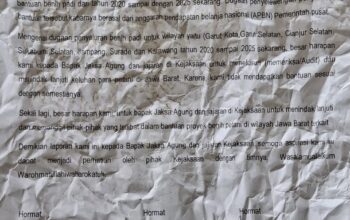 bantuan benih padi dari tahun 2020 sampai dengan 2025 sekarang,
bantuan tersebut kabarnya berasal dari anggaran pendapatan belanja nasional (APBN) Pemerintah pusat.
Mengenai dugaan penyaluran benih padi untuk wilayah yaitu (Garut Kota, Garut Selatan, Cianjur Selatan
Sukabumi Selatan, Surade dan Karawang tahun 2020 sampai 2025 sekarang, besar harapan
kami kepada Bapak Jaksa Agung dan jajaran di Kejaksaan untuk (memeriksa/Audit) dan
keluhan para petani di Jawa Barat. Karena kami tidak mendapatkan bantuan sesuai
dengan semestinya.
Sekali lagi, besar harapan kami, untuk bapak Jaksa Agung dan jajaran di Kejaksaan untuk menindak lanjuti
dan pihak-pihak yang terlibat dalam bantuan proyek benih petani di wilayah Jawa Barat
Demikian laporan kami ini kepada Bapak Jaksa Agung dan jajaran Kejaksaan, semoga aspirasi kami
dapat menjadi perhatian oleh pihak Kejaksaan dengan timnya,
Hormat Hormat